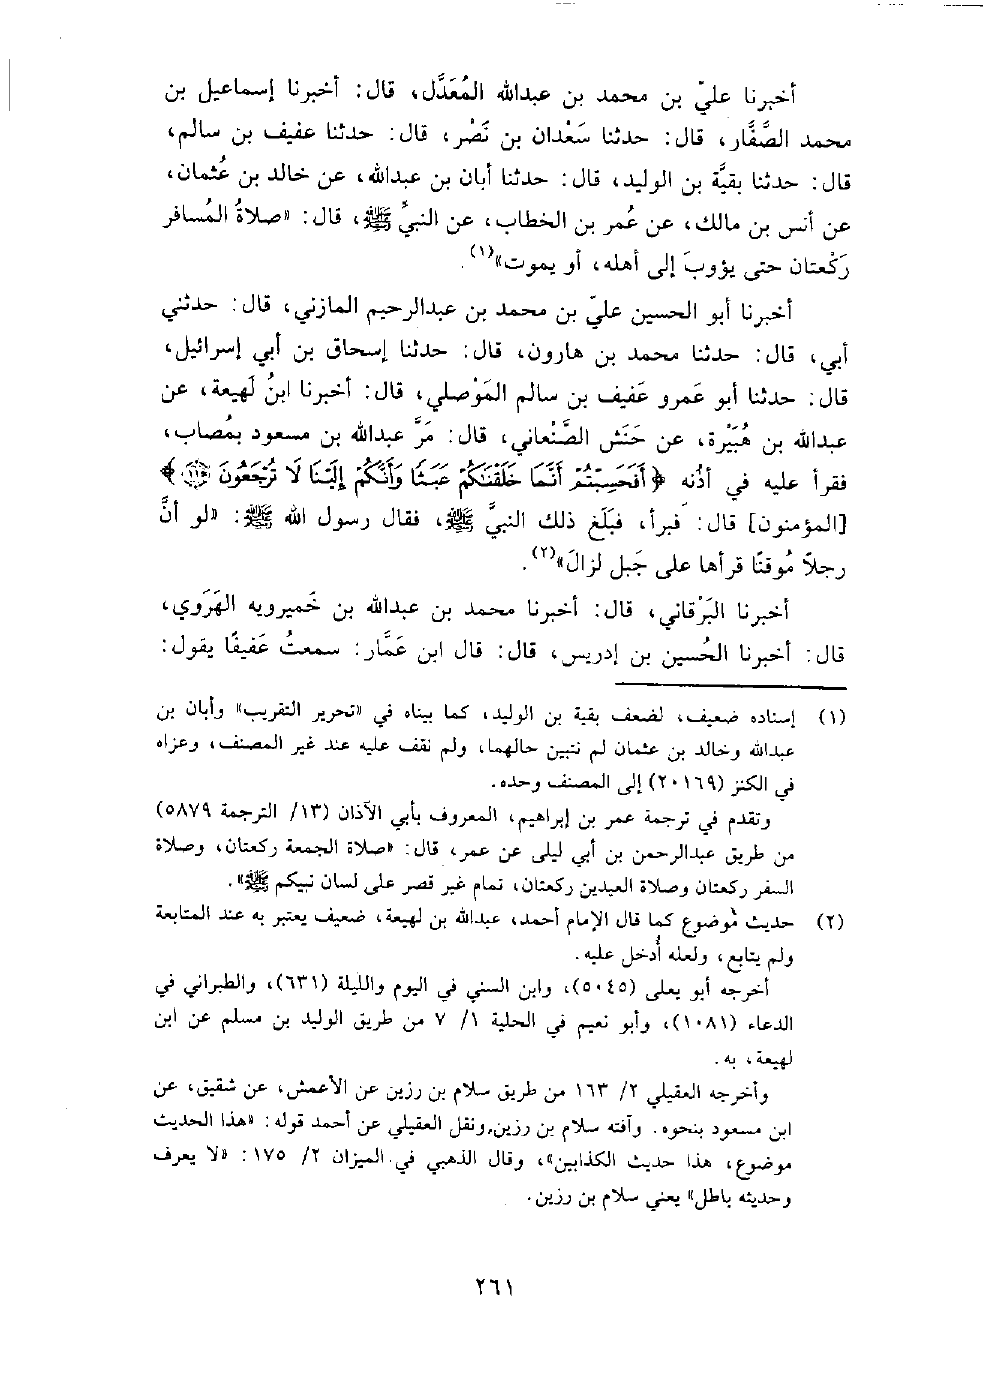 أخبرنا عليّ بن محمد بن عبدالله المُعَدَّل، قال: أخبرنا إسماعيل بن
محمد الصَّفَّار، قال: حدثنا سَعْدان بن نَصْر، قال: حدثنا عفيف بن سالم،
قال: حدثنا بقيَّة بن الوليد، قال: حدثنا أبان بن عبدالله، عن خالد بن عُثمان،
عن أنس بن مالك، عن عُمر بن الخطاب، عن النبيِّ ﷺ، قال: «صلاةُ المُسافر
رَكْعتان حتى يؤوبَ إلى أهله، أو يموت»(١).
أخبرنا أبو الحسين عليّ بن محمد بن عبدالرحيم المازني، قال: حدثني
أبي، قال: حدثنا محمد بن هارون، قال: حدثنا إسحاق بن أبي إسرائيل،
قال: حدثنا أبو عمرو عَفيف بن سالم المَوْصلي، قال: أخبرنا ابنُ لَهيعة، عن
عبدالله بن هُبَيْرة، عن حَنَش الصَّنْعاني، قال: مَرَّ عبدالله بن مسعود بمُصاب،
فقرأ عليه في أُذُنه ﴿أَفَحَسِبْتُمْ أَنَّمَا خَلَقْنَاكُمْ عَبَثًا وَأَنَّكُمْ إِلَيْنَا لَا تُرْجَعُونَ ١١٥﴾
[المؤمنون] قال: فبرأ، فبَلَغ ذلك النبيَّ ﷺ، فقال رسول الله ﷺ: «لو أنَّ
رجلاً مُوقنًا قرأها على جَبل لزالَ»(٢).
أخبرنا البَرْقاني، قال: أخبرنا محمد بن عبدالله بن خَميرويه الهَرَوي،
قال: أخبرنا الحُسين بن إدريس، قال: قال ابن عَمَّار: سمعتُ عَفيفًا يقول:
(١) إسناده ضعيف، لضعف بقية بن الوليد، كما بيناه في «تحرير التقريب» وأبان بن
عبدالله وخالد بن عثمان لم نتبين حالهما، ولم نقف عليه عند غير المصنف، وعزاه
في الكنز (٢٠١٦٩) إلى المصنف وحده.
وتقدم في ترجمة عمر بن إبراهيم، المعروف بأبي الآذان (١٣/ الترجمة ٥٨٧٩)
من طريق عبدالرحمن بن أبي ليلى عن عمر، قال: «صلاة الجمعة ركعتان، وصلاة
السفر ركعتان وصلاة العيدين ركعتان، تمام غير قصر على لسان نبيكم ﷺ».
(٢) حديث موضوع كما قال الإمام أحمد، عبدالله بن لهيعة، ضعيف يعتبر به عند المتابعة
ولم يتابع، ولعله أُدخل عليه.
أخرجه أبو يعلى (٥٠٤٥)، وابن السني في اليوم والليلة (٦٣١)، والطبراني في
الدعاء (١٠٨١)، وأبو نعيم في الحلية ١/ ٧ من طريق الوليد بن مسلم عن ابن
لهيعة، به.
وأخرجه العقيلي ٢/ ١٦٣ من طريق سلام بن رزين عن الأعمش، عن شقيق، عن
ابن مسعود بنحوه. وآفته سلام بن رزين، ونقل العقيلي عن أحمد قوله: «هذا الحديث
موضوع، هذا حديث الكذابين»، وقال الذهبي في الميزان ٢/ ١٧٥: «لا يعرف
وحديثه باطل» يعني سلام بن رزين.
٢٦١